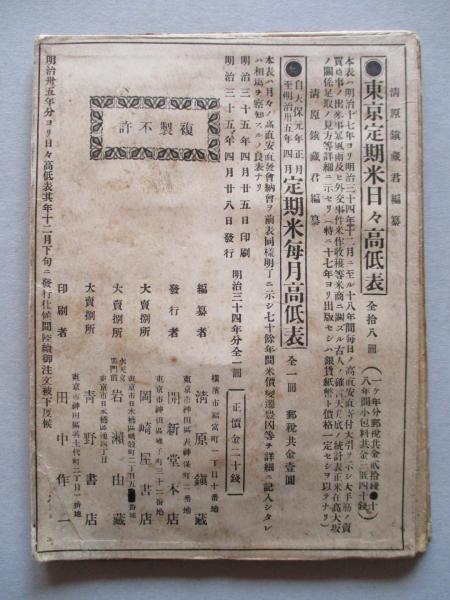 清原鎮藏君編纂
●東京定期米日々高低表 全拾八冊
一ケ年分郵税共金貳拾錢●十
八年間小包料共金三圓四十錢
本表ハ明治十七年ヨリ明治三十四年十二月ニ至ル十八年間毎日ノ高直安直寄付大引ヲ示シ大手筋ノ賣
買出來事暴風雨及ヒ外交事件米作收穫等米商ニ關スル古人ノ確言天井底ノ統計表正米在高大坂
ノ關係足取ノ見方等詳細ニ示セリ(特ニ十七年ヨリ出版セシハ銀貨紙幣ト價格一定セシヲ以テナリ)
清原鎮藏君編纂
●自天保元年正月至明治卅五年四月 定期米毎月高低表 全一冊 郵税共金壹圓
本表ハ月々ノ高直安直發會納會ヲ前表同樣明了ニ示シ七十餘年間米價變遷豊凶等ヲ詳細ニ記入シタレ
ハ相塲ヲ察知スルノ良表ナリ
明治三十五年四月廿五日印刷
明治三十五年四月廿八日發行
明治三十四年分全一冊
正價金二十錢
複製不許
横濱市福富町一丁目十番地
編纂者 清原鎮藏
東京市神田區表神保町二番地
發行者 開新堂本店
東京市神田區雉子町三十二番地
大賣捌所 岡崎屋書店
東京市日本橋區蠣殼町二丁目
水天宮裏門前
大賣捌所 岩瀬由藏
東京市日本橋區
大賣捌所 青野書店
東京市神田區美土代町二丁目一番地
印刷者 田中作一
明治卅五年分ヨリ日々高低表其年十二月下旬ニ發行仕候間陸續御注文被下度候